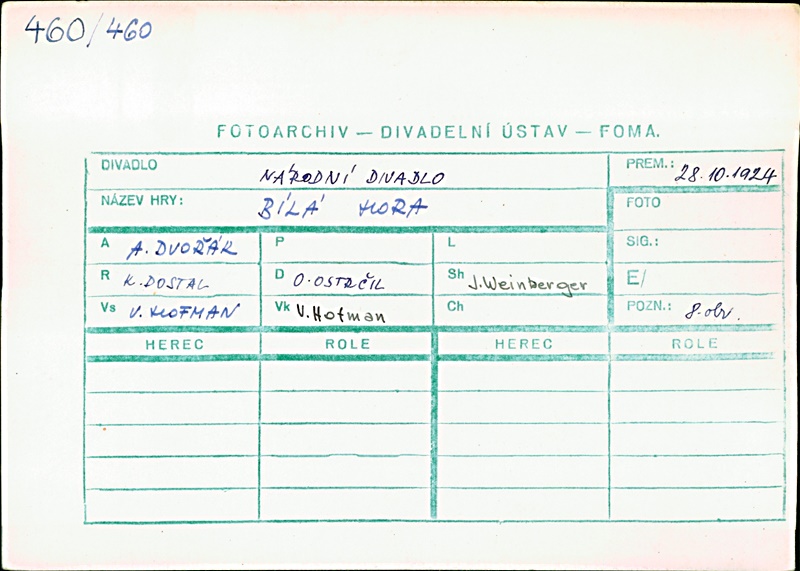 460/460
FOTOARCHIV — DIVADELNÍ ÚSTAV — FOMA.
DIVADLO NÁRODNÍ DIVADLO PREM.: 28.10.1924
NÁZEV HRY: BÍLÁ HORA FOTO
A A. DVOŘÁK P L SIG.:
R K. DOSTAL D O. OSTRČIL Sh J. Weinberger E/
Vs V. HOFMAN Vk V. Hofman Ch POZN.: 8. obr.
HEREC ROLE HEREC ROLE